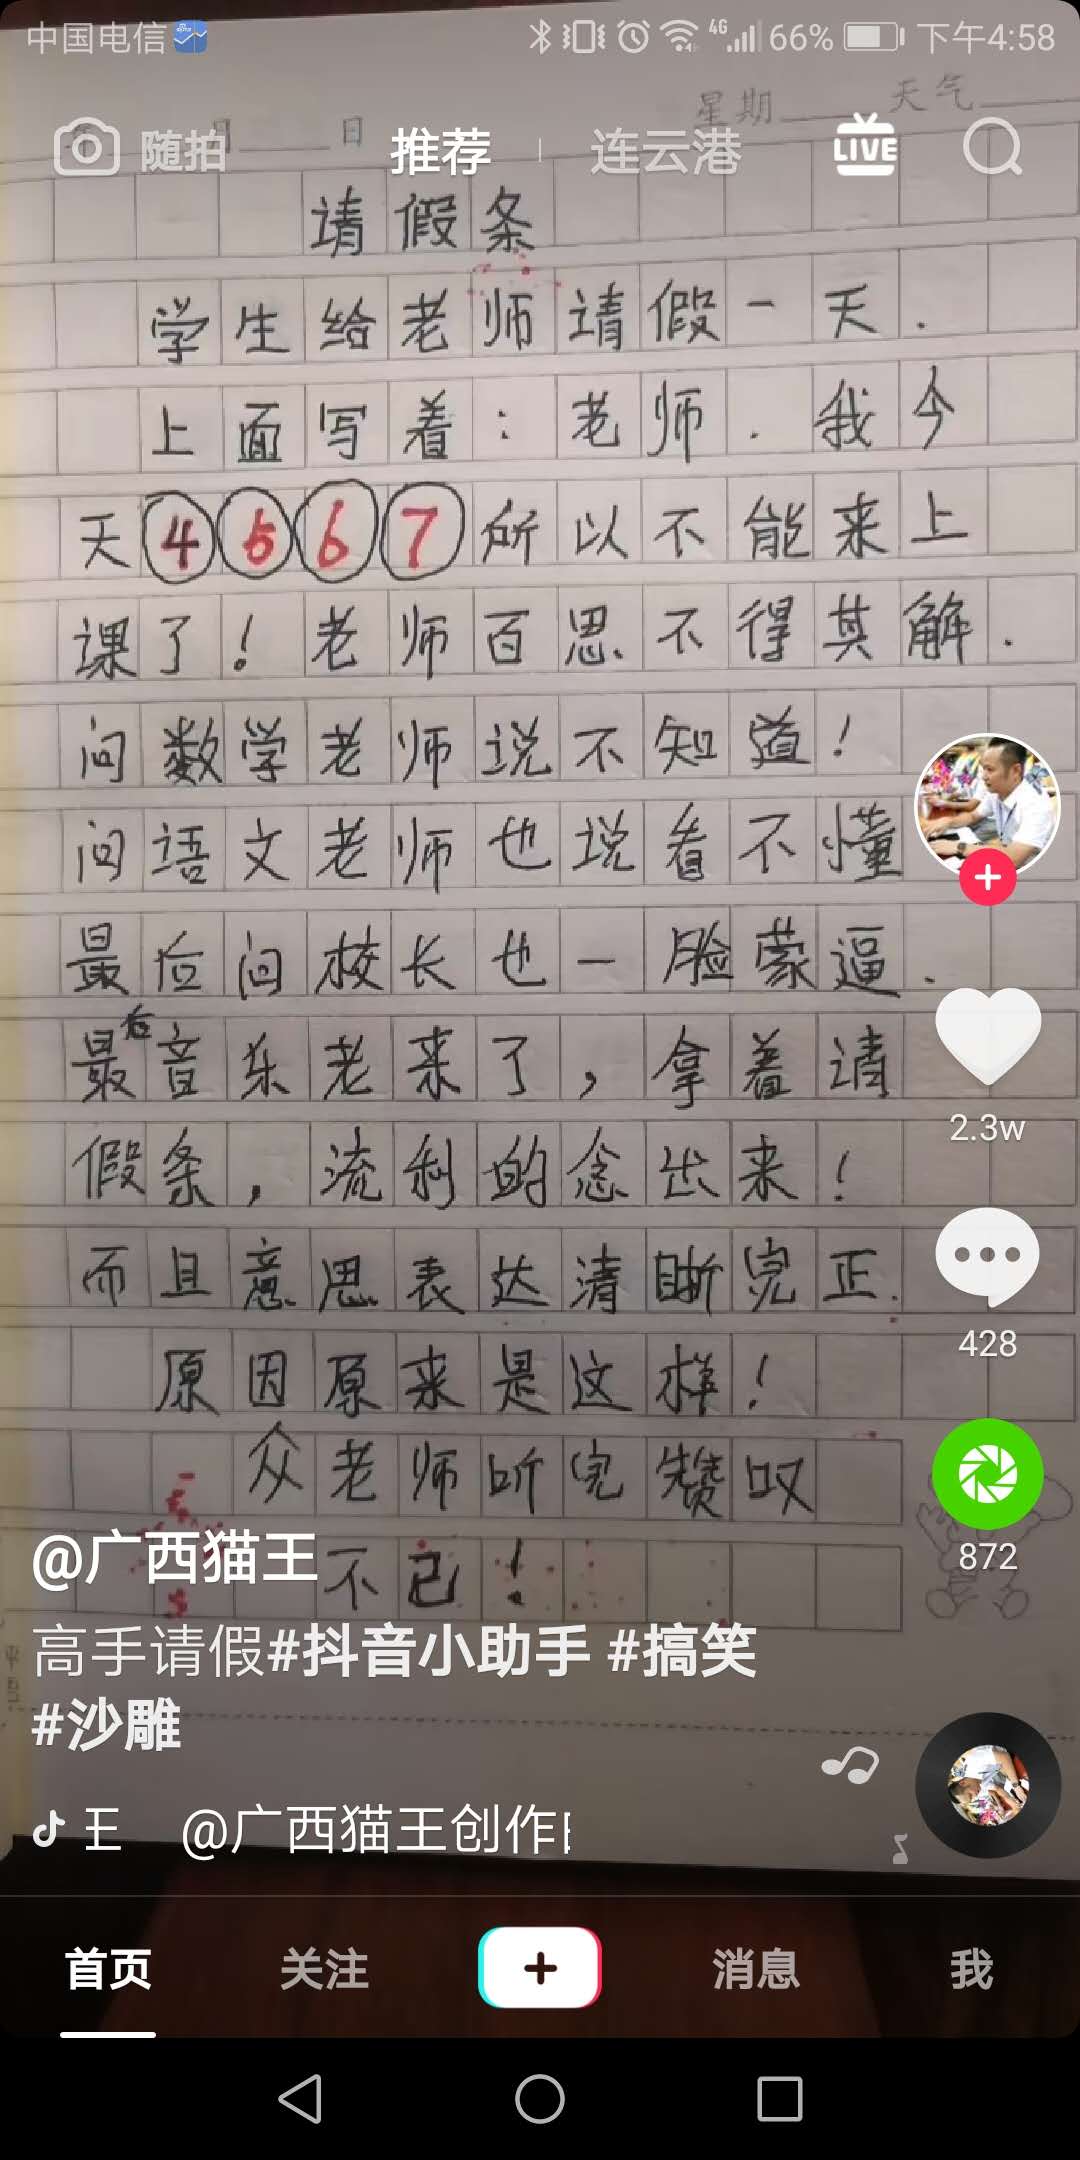 中国电信 4G 66% 下午4:58
星期 天气
月 日
随拍 推荐 连云港 LIVE
请假条
学生给老师请假一天.
上面写着:老师.我今
天④⑤⑥⑦所以不能来上
课了!老师百思不得其解.
问数学老师说不知道!
问语文老师也说看不懂
最后问校长也一脸蒙逼.
最后音乐老来了,拿着请
假条,流利的念出来!
而且意思表达清晰完正.
原因原来是这样!
众老师听完赞叹
不已!
2.3w
428
872
@广西猫王
高手请假#抖音小助手 #搞笑
#沙雕
王 @广西猫王创作
首页 关注 消息 我